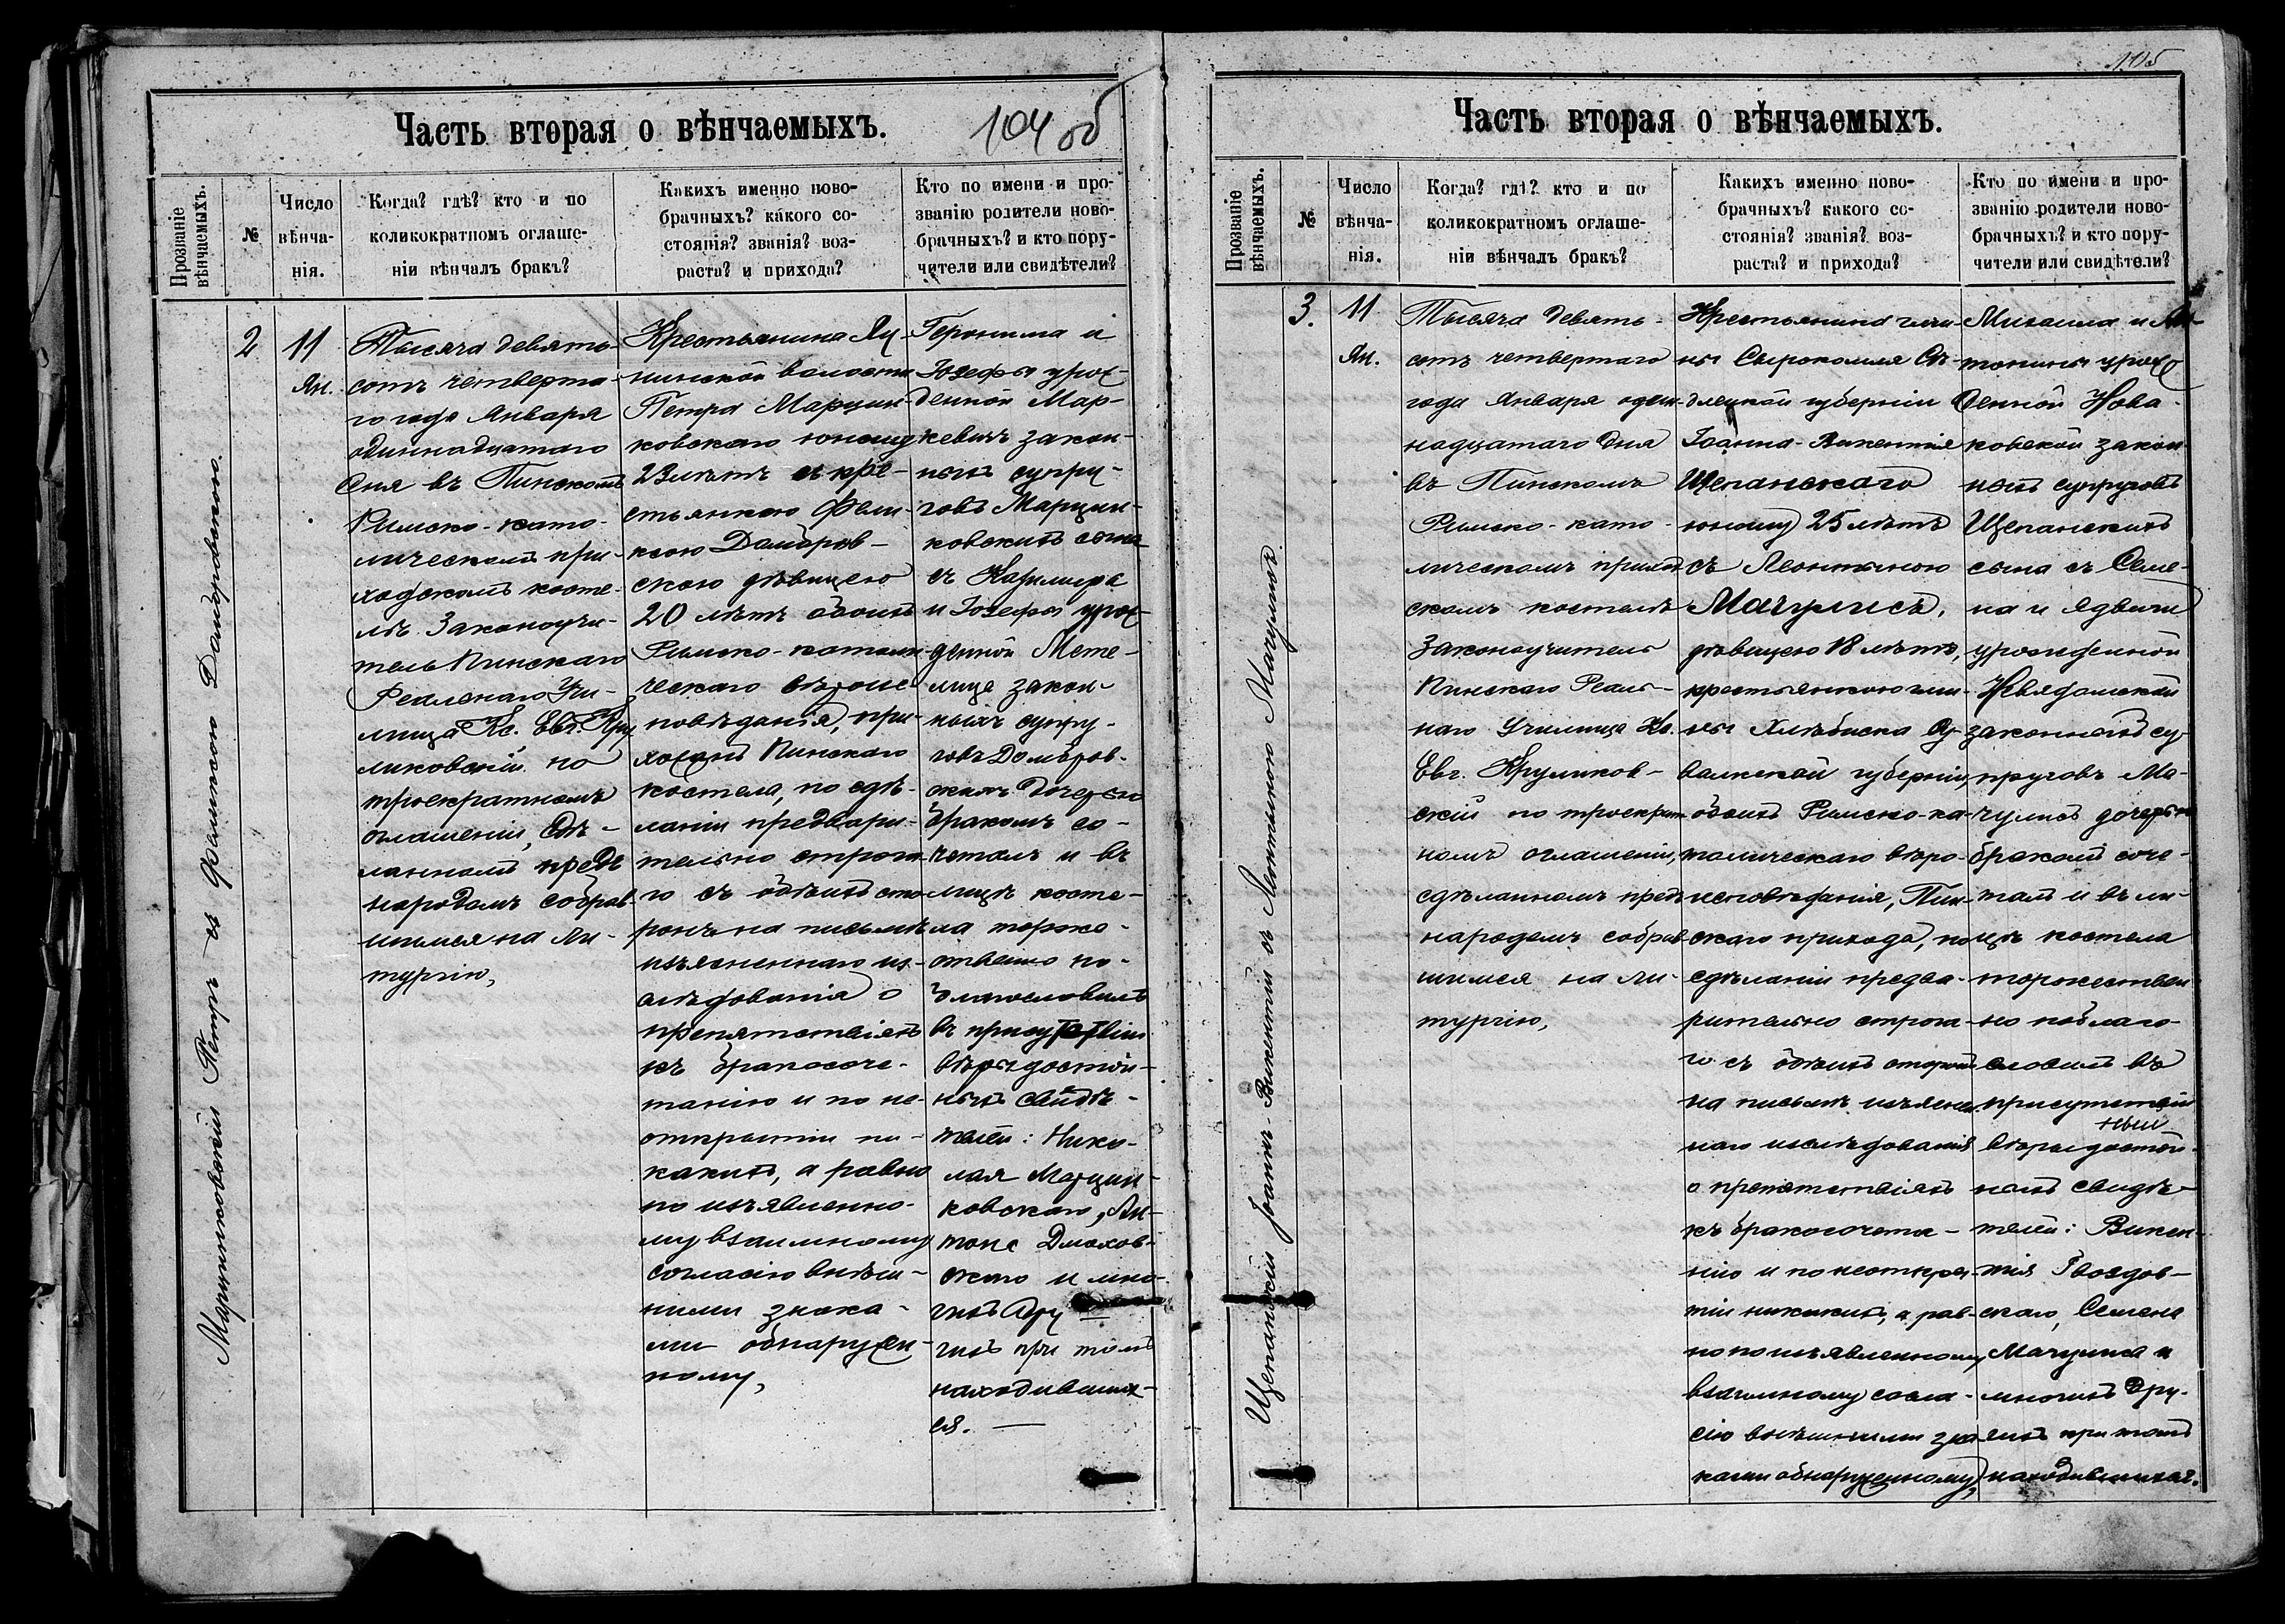 105
Часть вторая о вѣнчаемыхъ.
104 об
Прозваніе
вѣнчаемыхъ.
№
Число
вѣнча-
нія.
Когда? гдѣ? кто и по
коликократномъ оглаше-
ніи вѣнчалъ бракъ?
Какихъ именно ново-
брачныхъ? какого со-
стоянія? званія? воз-
раста? и прихода?
Кто по имени и про-
званію родители ново-
брачныхъ? и кто пору-
чители или свидѣтели?
Марцинковскій Петръ съ Феликсою Домбровскою.
2
11
Ян.
Тысяча девять-
сотъ четверта-
го года Января
одиннадцатаго
дня въ Пинскомъ
Римско-като-
лическомъ при-
ходскомъ косте-
лѣ Законоучи-
тель Пинскаго
Реальнаго Учи-
лища Кс. Евг. Кру
ликовскій по
троекратномъ
оглашеніи, сдѣ-
ланномъ предъ
народомъ собрав-
шимся на Ли-
тургію,
Крестьянина
нинской волости
Петра Марцин-
ковскаго юношу
23 лѣтъ съ кре-
стьянкою Фели-
ксою Домбров-
скою дѣвицею
20 лѣтъ обоихъ
Римско-католи-
ческаго вѣроис-
повѣданія, при-
хожанъ Пинскаго
костела, по сдѣ-
ланіи предвари-
тельно строга-
го съ обѣихъ сто-
ронъ на письмѣ
изъясненнаго из-
слѣдованія о
препятствіяхъ
къ бракосоче-
танію и по не-
открытіи ни-
какихъ, а равно
по изъявленно-
му взаимному
согласію внѣш-
ними знака-
ми обнаружен-
ному,
Геронима и
Іозефы урож-
денной Мар-
кевичъ закон-
ныхъ супру-
говъ Марцин-
ковскихъ сына
съ Казимира
и Іозефы урож-
денной Мете-
лица закон-
ныхъ супру-
говъ Домбров-
скихъ дочерью
бракомъ со-
четалъ и въ
лицѣ косте-
ла торже-
ственно по-
благословилъ
въ присутствіи
вѣрыдостой-
ныхъ свидѣ-
телей: Нико-
лая Марцин-
ковскаго, Ан-
тона Дмохов-
скаго и мно-
гихъ дру-
гихъ при томъ
находивших-
ся. —
Часть вторая о вѣнчаемыхъ.
Прозваніе
вѣнчаемыхъ.
№
Число
вѣнча-
нія.
Когда? гдѣ? кто и по
коликократномъ оглаше-
ніи вѣнчалъ бракъ?
Какихъ именно ново-
брачныхъ? какого со-
стоянія? званія? воз-
раста? и прихода?
Кто по имени и про-
званію родители ново-
брачныхъ? и кто пору-
чители или свидѣтели?
Щепанскій Іоаннъ-Викентій съ Леонтиною Мачулисъ
3.
11
Ян.
Тысяча девять-
сотъ четвертаго
года Января один-
надцатаго дня
въ Пинскомъ
Римско-като-
лическомъ приход-
скомъ костелѣ
Законоучитель
Пинскаго Реаль-
наго Училища Кс.
Евг. Круликов-
скій по троекрат-
номъ оглашеніи,
сдѣланномъ предъ
народомъ собрав-
шимся на Ли-
тургію,
Крестьянина гми-
ны Сырокомля Сѣ-
длецкой губерніи
Іоанна-Викентія
Щепанскаго
юношу 25 лѣтъ
съ Леонтиною
Мачулисъ,
дѣвицею 18 лѣтъ,
крестьянкою гми-
ны Хлѣбиска Су-
валкской губерніи,
обоихъ Римско-ка-
толическаго вѣро-
исповѣданія, Пин-
скаго прихода, по
сдѣланіи предва-
рительно строга-
го съ обѣихъ сторонъ
на письмѣ изъяснен-
наго изслѣдованія
о препятствіяхъ
къ бракосочета-
нію и по неоткры-
тіи никакихъ, а рав-
но по изъявленному
взаимному согла-
сію внѣшними зна-
ками обнаруженному,
Михаила и Ан-
тонины урож-
денной Нова-
ковской закон-
ныхъ супруговъ
Щепанскихъ
сына съ Семе-
на и Ядвиги
урожденной
законныхъ су-
пруговъ Ма-
чулисъ дочерью
бракомъ соче-
талъ и въ ли-
цѣ костела
торжествен-
но поблаго-
словилъ въ
присутствіи
вѣрыдостой-
ныхъ свидѣ-
телей: Викен-
тія Гвоздов-
скаго, Семена
Мачулиса и
многихъ дру-
гихъ при томъ
находившихся.